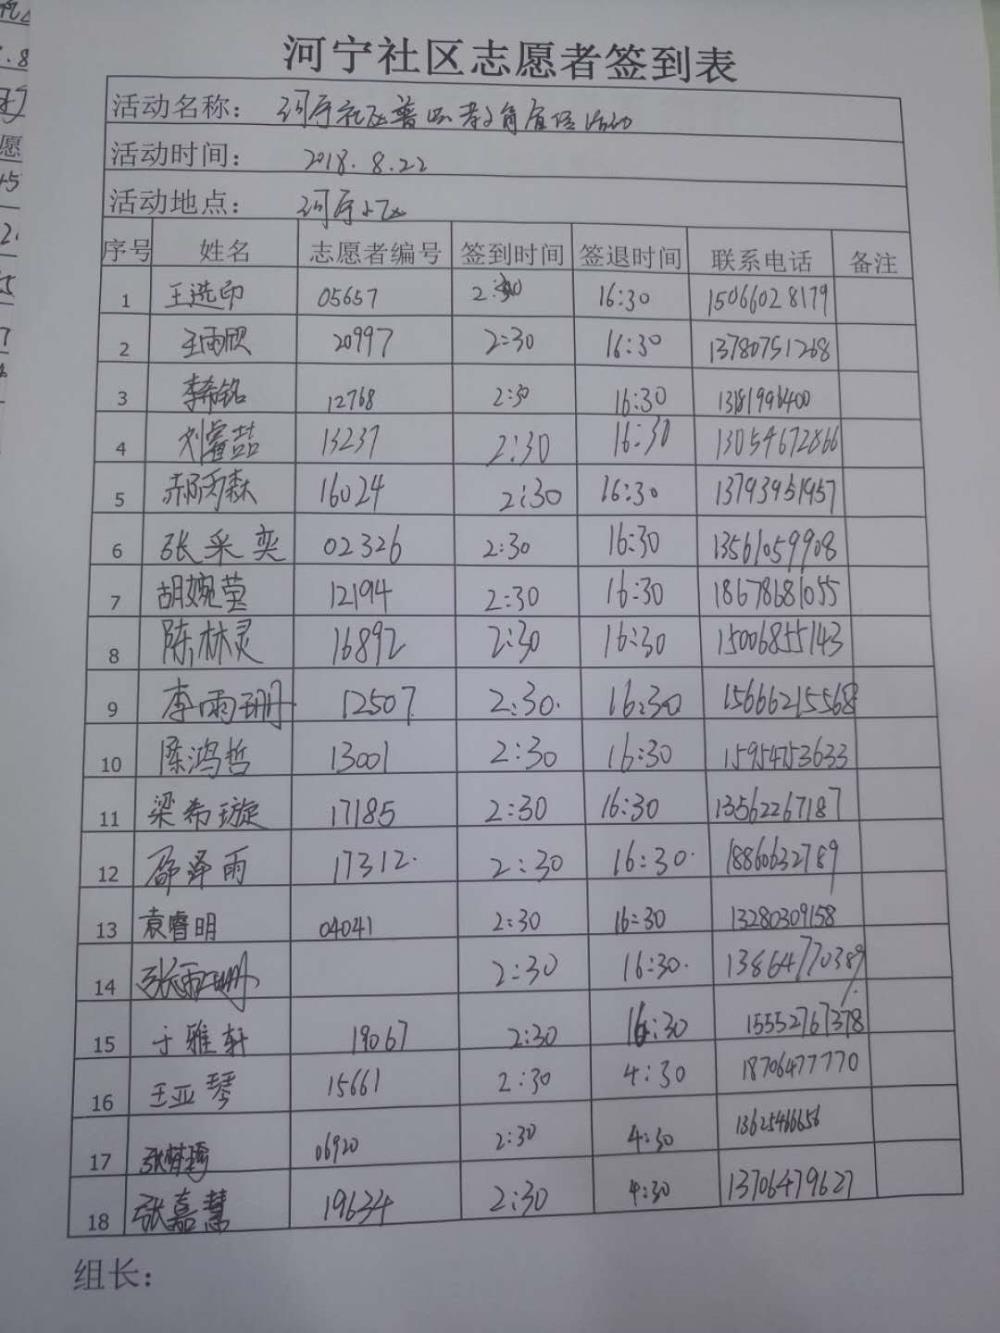 河宁社区志愿者签到表
活动名称：河宁社区普 教育宣传活动
活动时间：2018.8.22
活动地点：河宁社区
序号 姓名 志愿者编号 签到时间 签退时间 联系电话 备注
1 王选印 05657 2:30 16:30 15066028179
2 王雨欣 20997 2:30 16:30 13780751268
3 李希铭 12768 2:30 16:30 13181996400
4 刘睿喆 13237 2:30 16:30 13054672866
5 郝雨森 16024 2:30 16:30 13793951957
6 张采奕 02326 2:30 16:30 13561059908
7 胡婉莹 12194 2:30 16:30 18678681055
8 陈林灵 16892 2:30 16:30 15006855143
9 李雨珊 12507 2:30 16:30 15666215568
10 陈鸿哲 13001 2:30 16:30 15954753633
11 梁希璇 17185 2:30 16:30 13562267187
12 邵泽雨 17312 2:30 16:30 18860632789
13 袁睿明 04041 2:30 16:30 13280309158
14 张雨珊 2:30 16:30 13864770389
15 于雅轩 19067 2:30 16:30 15552767378
16 王亚琴 15661 2:30 4:30 18706477770
17 张梦琦 06920 2:30 4:30 13625466656
18 张嘉慧 19634 2:30 4:30 13706479627
组长：